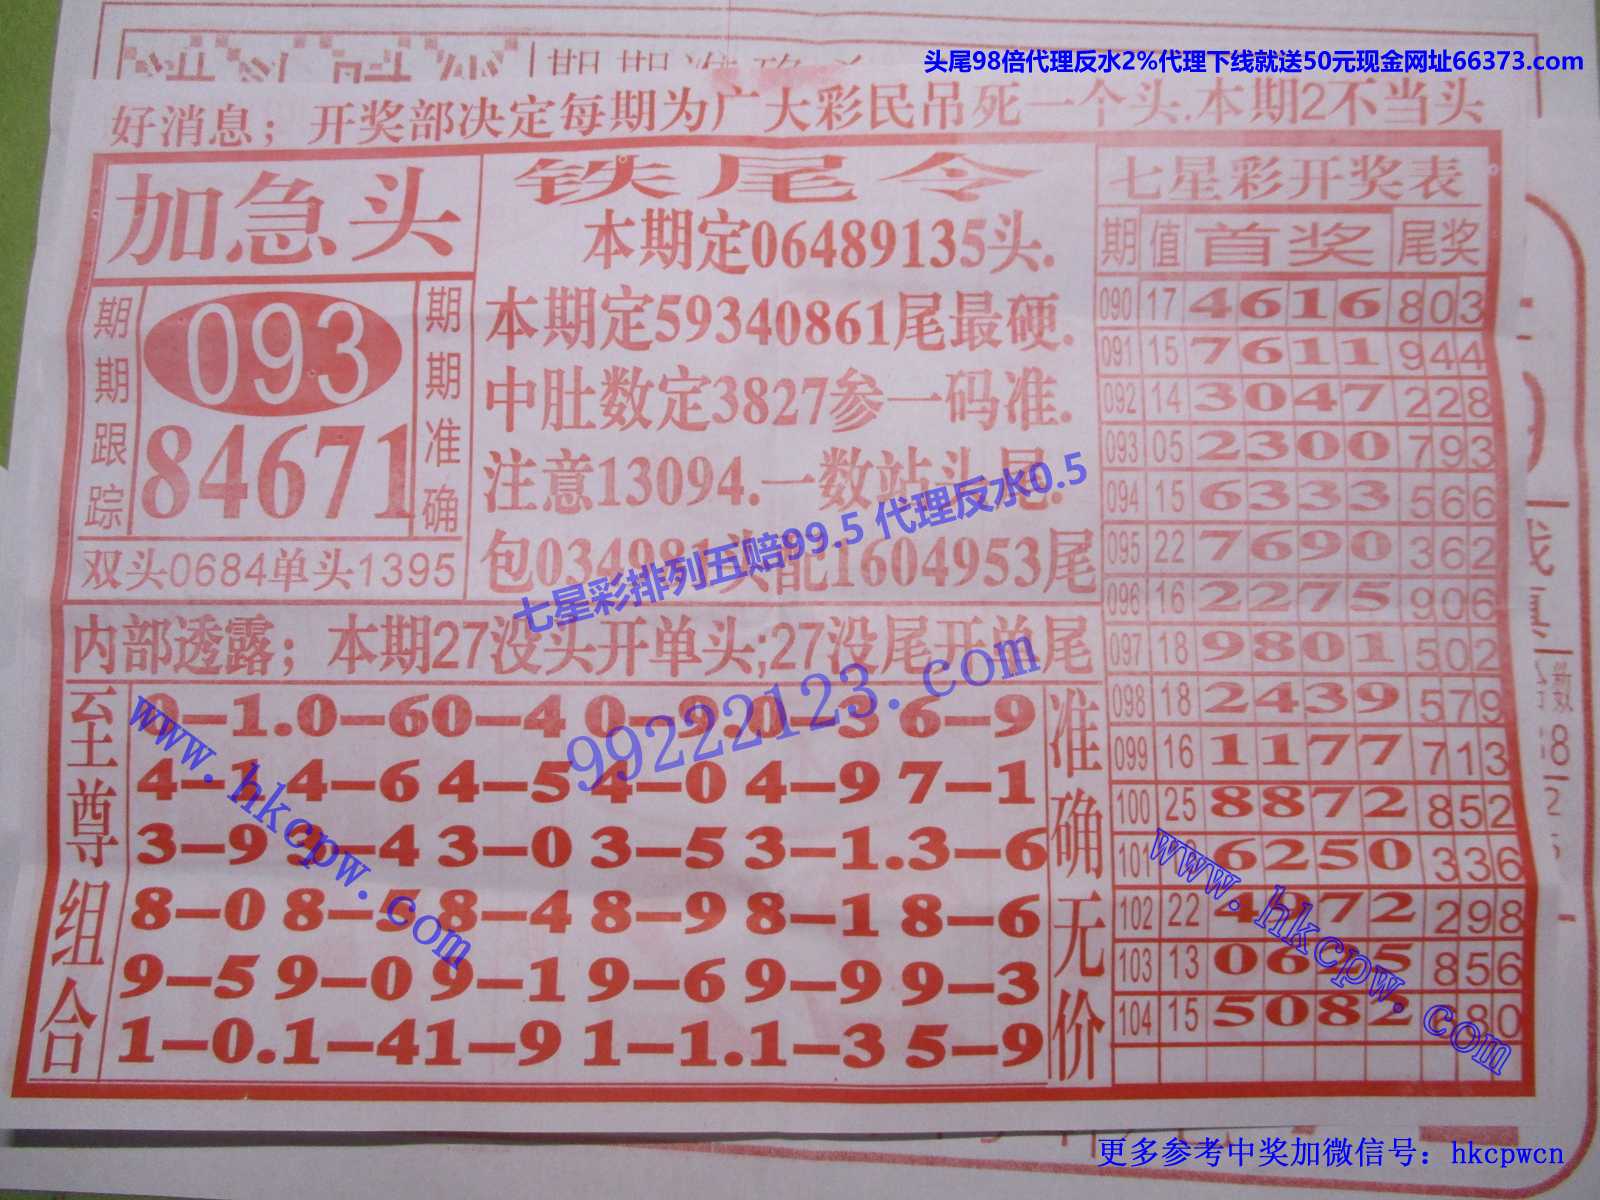 头尾98倍代理反水2%代理下线就送50元现金网址66373.com
好消息；开奖部决定每期为广大彩民吊死一个头.本期2不当头
加急头
期期跟踪
093
84671
期期准确
双头0684单头1395
铁尾令
本期定06489135头.
本期定59340861尾最硬.
中肚数定3827参一码准.
注意13094.一数站头尾.
包034981头配1604953尾
七星彩排列五赔99.5 代理反水0.5
内部透露；本期27没头开单头;27没尾开单尾
99222123.com
至尊组合
0-1.0-60-4 0-9 0-3 6-9
4-1.4-6 4-5 4-0 4-9 7-1
3-9 3-4 3-0 3-5 3-1.3-6
8-0 8-5 8-4 8-9 8-1 8-6
9-5 9-0 9-1 9-6 9-9 9-3
1-0.1-41-9 1-1.1-3 5-9
准确无价
www.hkcpw.com
七星彩开奖表
期 值 首奖 尾奖
090 17 4616 803
091 15 7611 944
092 14 3047 228
093 05 2300 793
094 15 6333 566
095 22 7690 362
096 16 2275 906
097 18 9801 502
098 18 2439 579
099 16 1177 713
100 25 8872 852
101 6250 336
102 22 4972 298
103 13 0645 856
104 15 5082 80
www.hkcpw.com
更多参考中奖加微信号：hkcpwcn